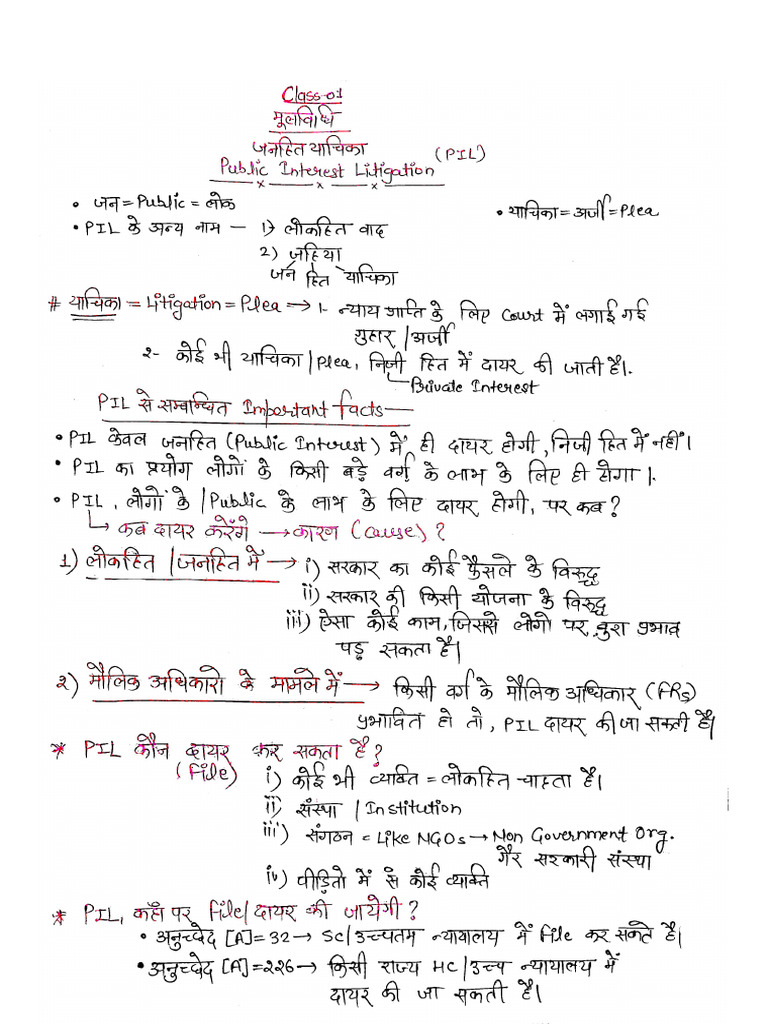 Class-01
मूलविधि
जनहित याचिका (PIL)
Public Interest Litigation
• जन = Public = लोक • याचिका = अर्जी = Plea
• PIL के अन्य नाम — 1) लोकहित वाद
2) जहिया
जन हित याचिका
# याचिका = Litigation = Plea → 1- न्याय प्राप्ति के लिए Court में लगाई गई
गुहार / अर्जी
2- कोई भी याचिका / Plea, निजी हित में दायर की जाती है।
Private Interest
PIL से सम्बन्धित Important facts
• PIL केवल जनहित (Public Interest) में ही दायर होगी, निजी हित में नहीं।
• PIL का प्रयोग लोगों के किसी बड़े वर्ग के लाभ के लिए ही होगा।
• PIL, लोगों के / Public के लाभ के लिए दायर होगी, पर कब?
↳ कब दायर करेंगे → कारण (Cause)?
1) लोकहित / जनहित में → i) सरकार का कोई फैसले के विरुद्ध
ii) सरकार की किसी योजना के विरुद्ध
iii) ऐसा कोई काम, जिससे लोगो पर बुरा प्रभाव
पड़ सकता है।
2) मौलिक अधिकारो के मामले में → किसी वर्ग के मौलिक अधिकार (FRs)
प्रभावित हो तो, PIL दायर की जा सकती है।
* PIL कौन दायर कर सकता है?
(File) i) कोई भी व्यक्ति = लोकहित चाहता है।
ii) संस्था / Institution
iii) संगठन = Like NGOs → Non Government Org.
गैर सरकारी संस्था
iv) पीड़ितो में से कोई व्यक्ति
* PIL, कहाँ पर File / दायर की जायेगी?
• अनुच्छेद [A] = 32 → SC / उच्चतम न्यायालय में File कर सकते है।
• अनुच्छेद [A] = 226 → किसी राज्य HC / उच्च न्यायालय में
दायर की जा सकती है।